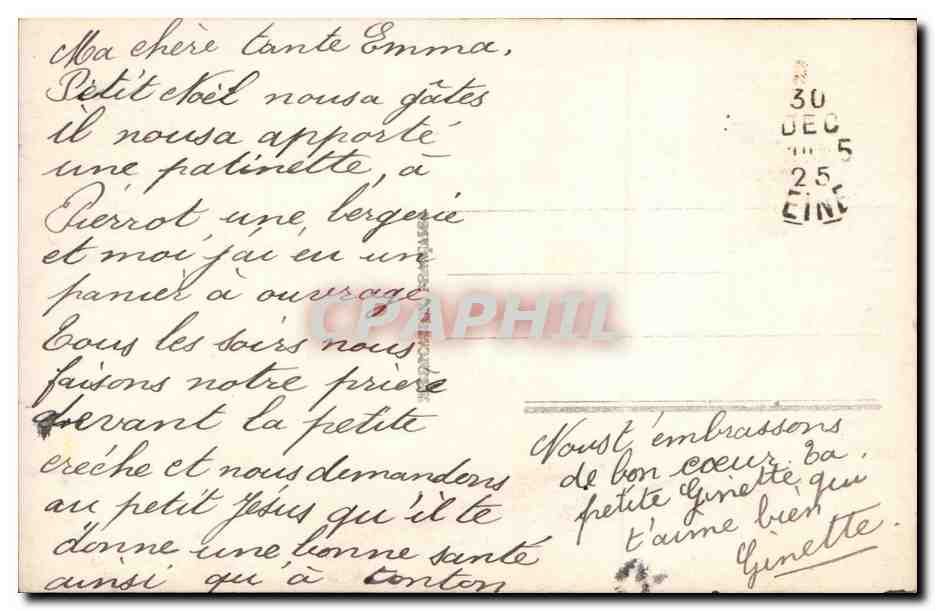 Ma chère tante Emma,
Petit Noël nousa gâtes
il nousa apporté
une patinette, à
Pierrot une bergerie
et moi j'ai eu un
panier à ouvrage
Tous les soirs nous
faisons notre prière
devant la petite
crèche et nous demandons
au petit Jésus qu'il te
donne une bonne santé
ainsi qu'à tonton
Noust'embrassons
de bon coeur. Ta
petite Ginette qui
t'aime bien
Ginette.
30
DEC
25
EINE
CPAPHIL